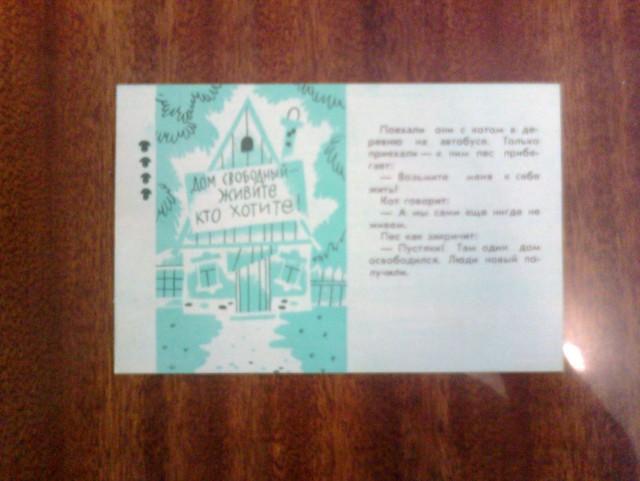 ДОМ СВОБОДНЫЙ—
ЖИВИТЕ
КТО ХОТИТЕ!
Поехали они с котом в де-
ревню на автобусе. Только
приехали — к ним пес прибе-
гает:
— Возьмите меня к себе
жить!
Кот говорит:
— А мы сами еще нигде не
живем.
Пес как закричит:
— Пустяки! Там один дом
освободился. Люди новый по-
лучили.